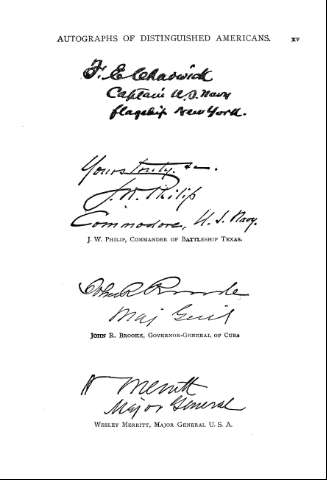 AUTOGRAPHS OF DISTINGUISHED AMERICANS. xv
F. E. Chadwick
Captain U.S. Navy
flagship New York.
Yours truly, &c.
J. W. Philip
Commodore, U. S. Navy.
J. W. PHILIP, COMMANDER OF BATTLESHIP TEXAS.
John R. Brooke
Maj Genl
JOHN R. BROOKE, GOVERNOR-GENERAL OF CUBA
W Merritt
Major General
WESLEY MERRITT, MAJOR GENERAL U. S. A.